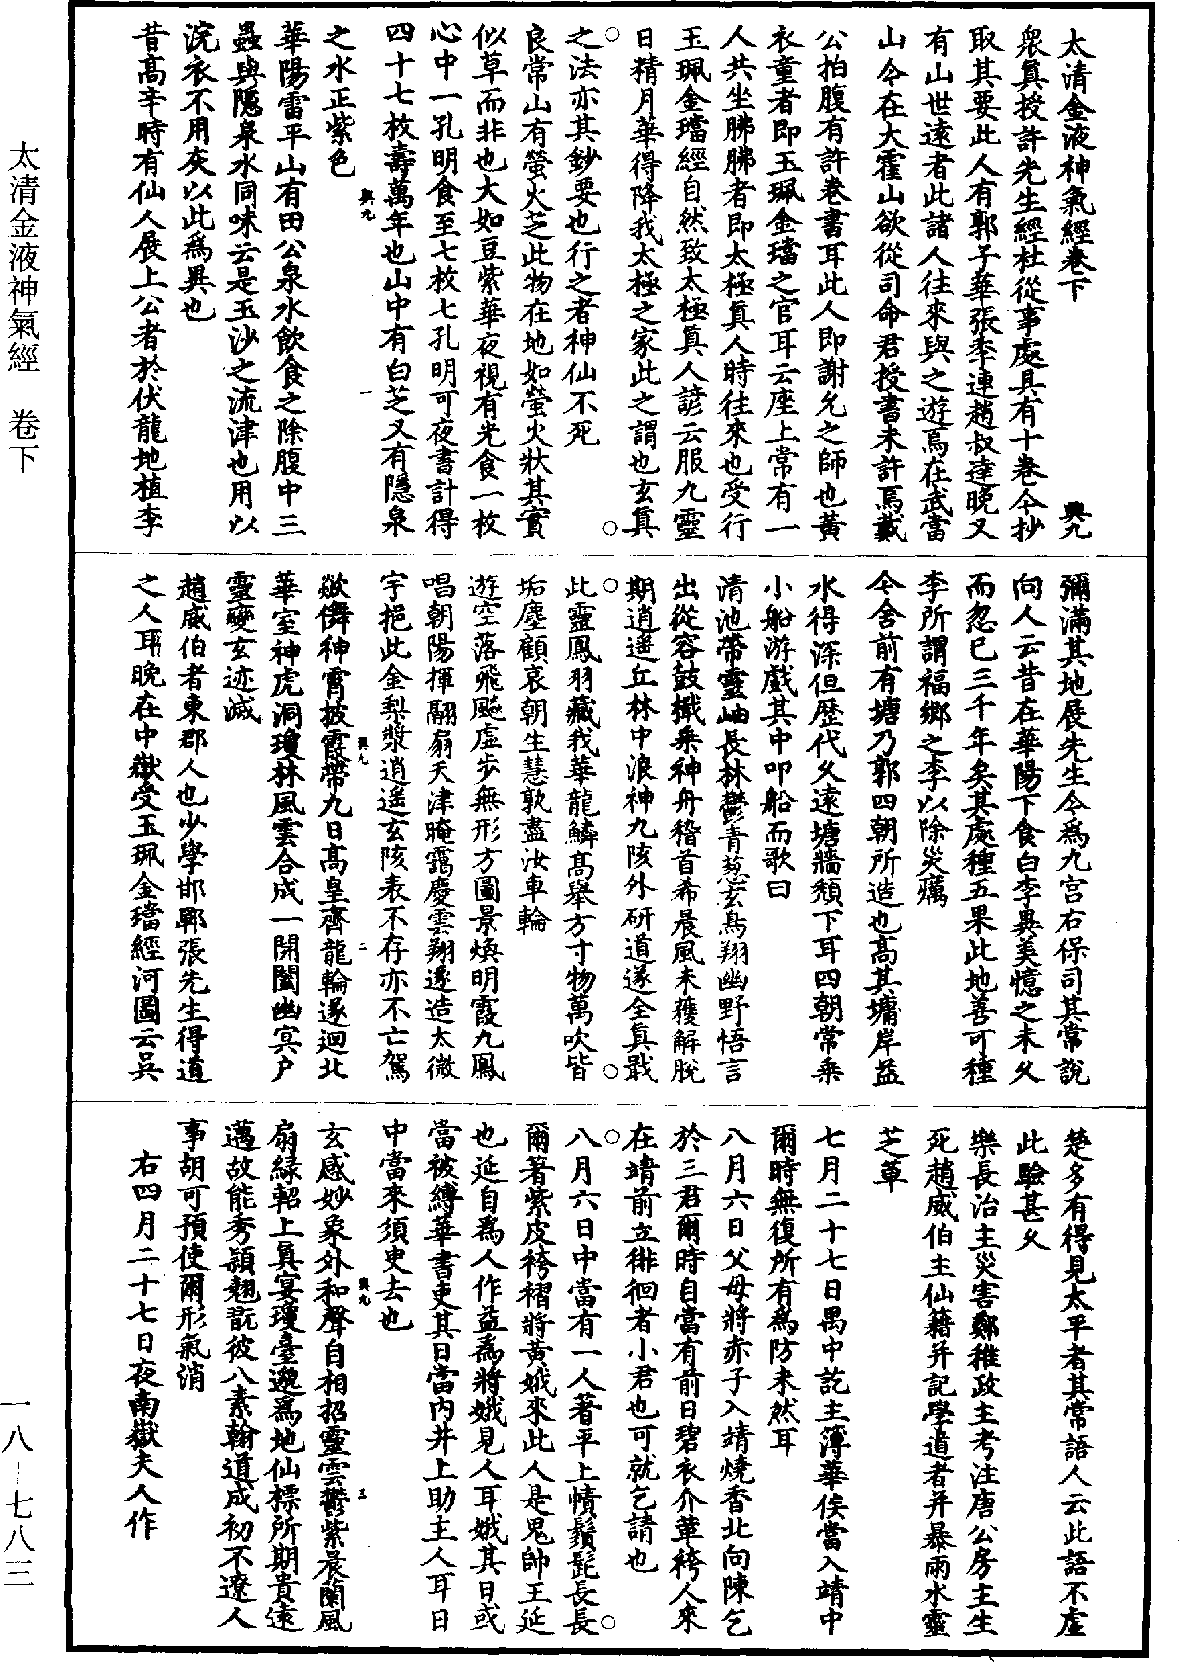 太清金液神氣經卷下　興九
衆眞授許先生經杜從事處具有十卷今抄
取其要此人有郭子華張季連趙叔達晚又
有山世遠者此諸人往來與之遊焉在武當
山今在大霍山欲從司命君授書未許焉戴
公拍腹有許卷書耳此人即謝允之師也黃
衣童者即玉珮金璫之官耳云座上常有一
人共坐胇胇者即太極眞人時往來也受行
玉珮金璫經自然致太極眞人諺云服九靈
日精月華得降我太極之家此之謂也玄眞
之法亦其鈔要也行之者神仙不死
良常山有螢火芝此物在地如螢火狀其實
似草而非也大如豆紫華夜視有光食一枚
心中一孔明食至七枚七孔明可夜書計得
四十七枚壽萬年也山中有白芝又有隱泉
之水正紫色
興九　一
華陽雷平山有田公泉水飲食之除腹中三
蟲與隱泉水同味云是玉沙之流津也用以
浣衣不用灰以此爲異也
昔高辛時有仙人展上公者於伏龍地植李
彌滿其地展先生今爲九宮右保司其常說
向人云昔在華陽下食白李異美憶之未久
而忽已三千年矣其處種五果此地善可種
李所謂福鄉之李以除災癘
今舍前有塘乃郭四朝所造也高其墉岸益
水得深但歷代久遠塘牆頹下耳四朝常乘
小船游戲其中叩船而歌曰
清池帶靈岫長林鬱青葱玄鳥翔幽野悟言
出從容鼓檝乘神舟稽首希晨風未獲解脫
期逍遙丘林中浪神九陔外研道遂全眞戢
此靈鳳羽藏我華龍鱗高舉方寸物萬吹皆
垢塵顧哀朝生蟪孰盡汝車輪
遊空落飛飈虛步無形方圓景煥明霞九鳳
唱朝陽揮翮扇天津晻靄慶雲翔遂造太微
宇挹此金梨漿逍遙玄陔表不存亦不亡駕
欻儛神霄披霞帶九日高皇齊龍輪遂迴北
華室神虎洞瓊林風雲合成一開闔幽冥户
靈變玄迹滅
興九　二
趙威伯者東郡人也少學邯鄲張先生得道
之人耳晚在中嶽受玉珮金璫經河圖云吳
楚多有得見太平者其常語人云此語不虛
此驗甚久
樂長治主災害鄭稚政主考注唐公房主生
死趙威伯主仙籍并記學道者并暴雨水靈
芝草
七月二十七日禺中訖主簿華侯當入靖中
爾時無復所有爲防未然耳
八月六日父母將赤子入靖燒香北向陳乞
於三君爾時自當有前日碧衣介幘袴人來
在靖前立徘徊者小君也可就乞請也
八月六日中當有一人著平上幘鬚髭長長
爾著紫皮袴褶將黃娥來此人是鬼帥王延
也延自爲人作益爲將娥見人耳娥其日或
當被縛華書吏其日當內井上助主人耳日
中當來須臾去也
玄感妙象外和聲自相招靈雲鬱紫晨蘭風
扇緑軺上眞宴瓊臺邈爲地仙標所期貴遠
邁故能秀頴翹翫彼八素翰道成初不遼人
事胡可預使爾形氣消
右四月二十七日夜南嶽夫人作
興九　三
太清金液神氣經　卷下
一八—七八三